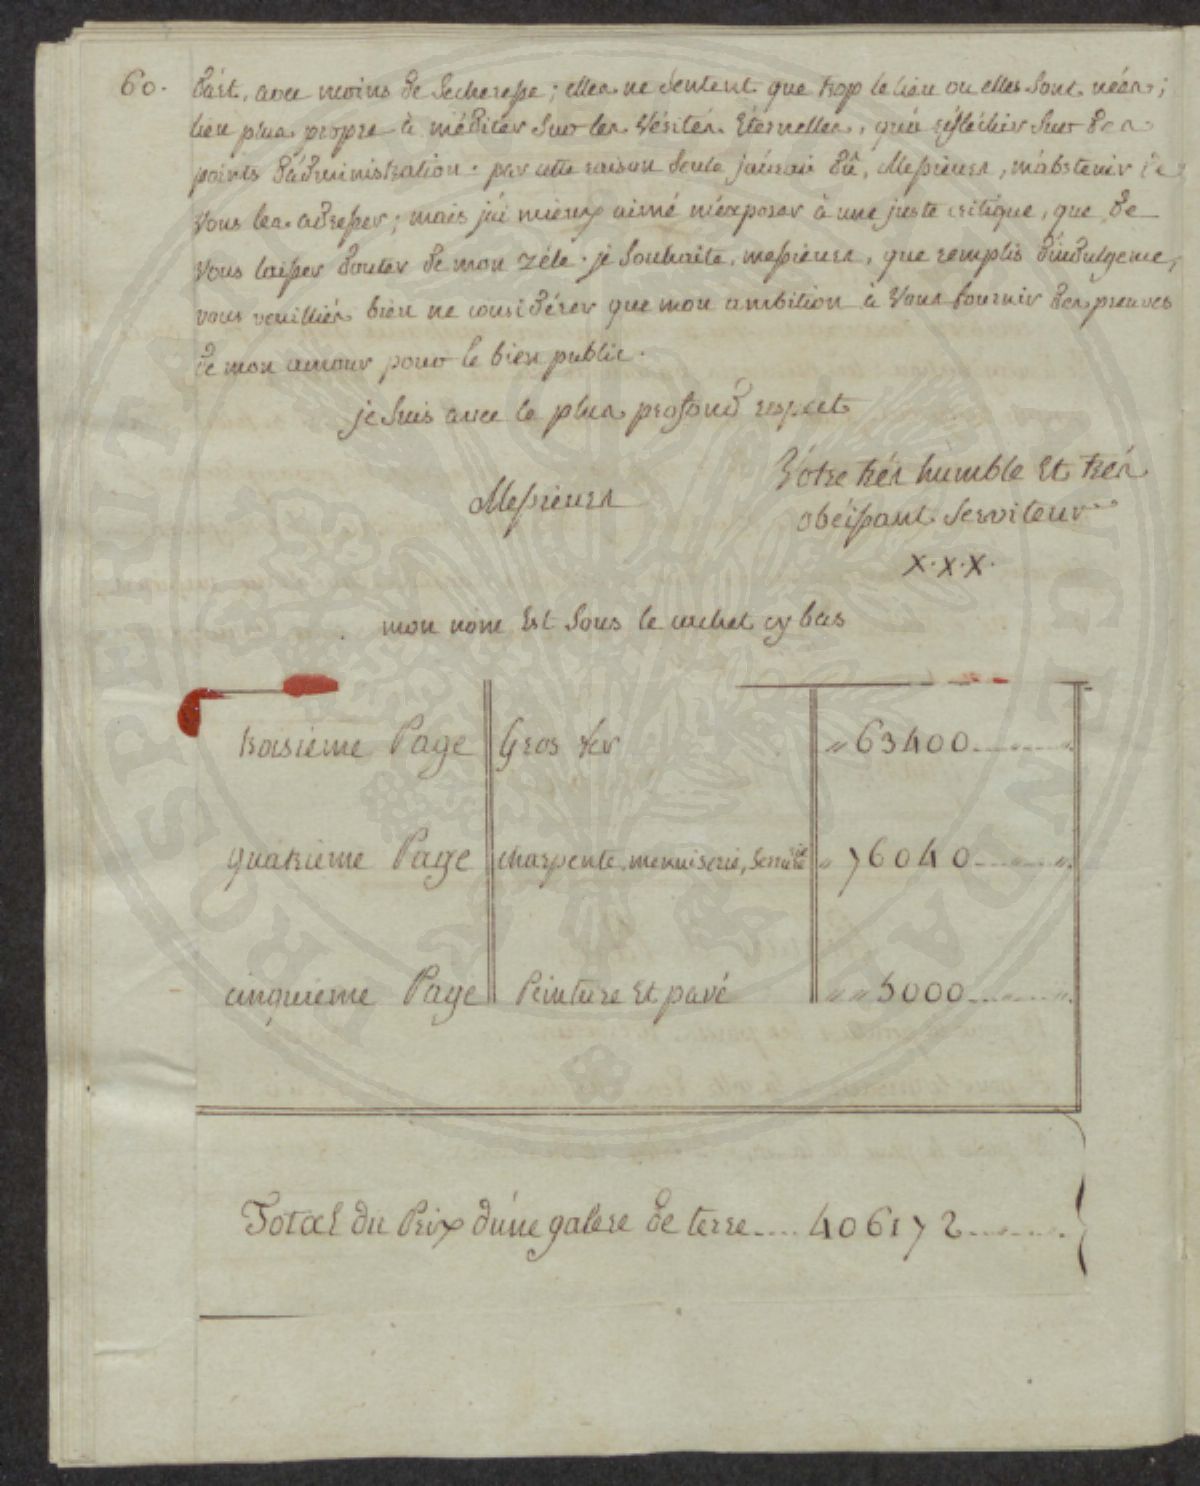 60. d'árt, avec moins de Secheresse; elles ne Sentent que trop le lieu ou elles Sont néés;
lieu plus propre à méditer Sur les Vérités Eternelles, qu'à réflèchir Sur des
points d'administration. par cette raison Seule j'aurais dû, Messieurs, m'abstenir de
Vous les adresser; mais j'ai mieux aimé m'exposer à une juste critique, que de
Vous laisser douter de mon zéle. je Souhaite, messieurs, que remplis d'indulgence,
vous veuilliés bien ne considérer que mon ambition à Vous fournir des preuves
de mon amour pour le bien public.
je Suis avec le plus profond respect
Messieurs
Vôtre trés humble Et trés
obéissant Serviteur
X.X.X.
mon nom Est Sous le cachet cy bas
troisieme Page Gros fer " 63400 ........ ".
quatrieme Page charpente, menuiserie, Serrurie " 76040 ........ ".
cinquieme Page Peinture Et pavé " " 5000 ........ ".
Total du Prix d'une galere de terre .... 406172 ........
PROSPERITAS AUGENDA